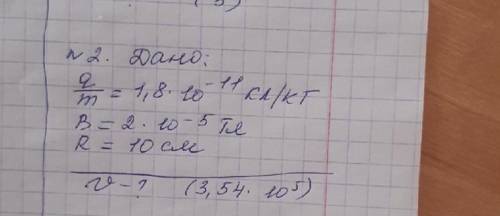 (5)
N2. Дано:
q/m = 1,8 · 10⁻¹¹ Кл/КГ
B = 2 · 10⁻⁵ Тл
R = 10 см
v - ? (3,54 · 10⁵)